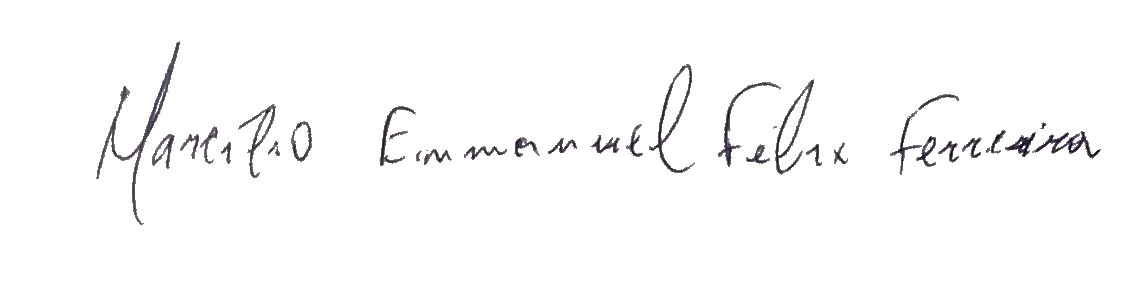 Marcilio Emmanuel Felix Ferreira